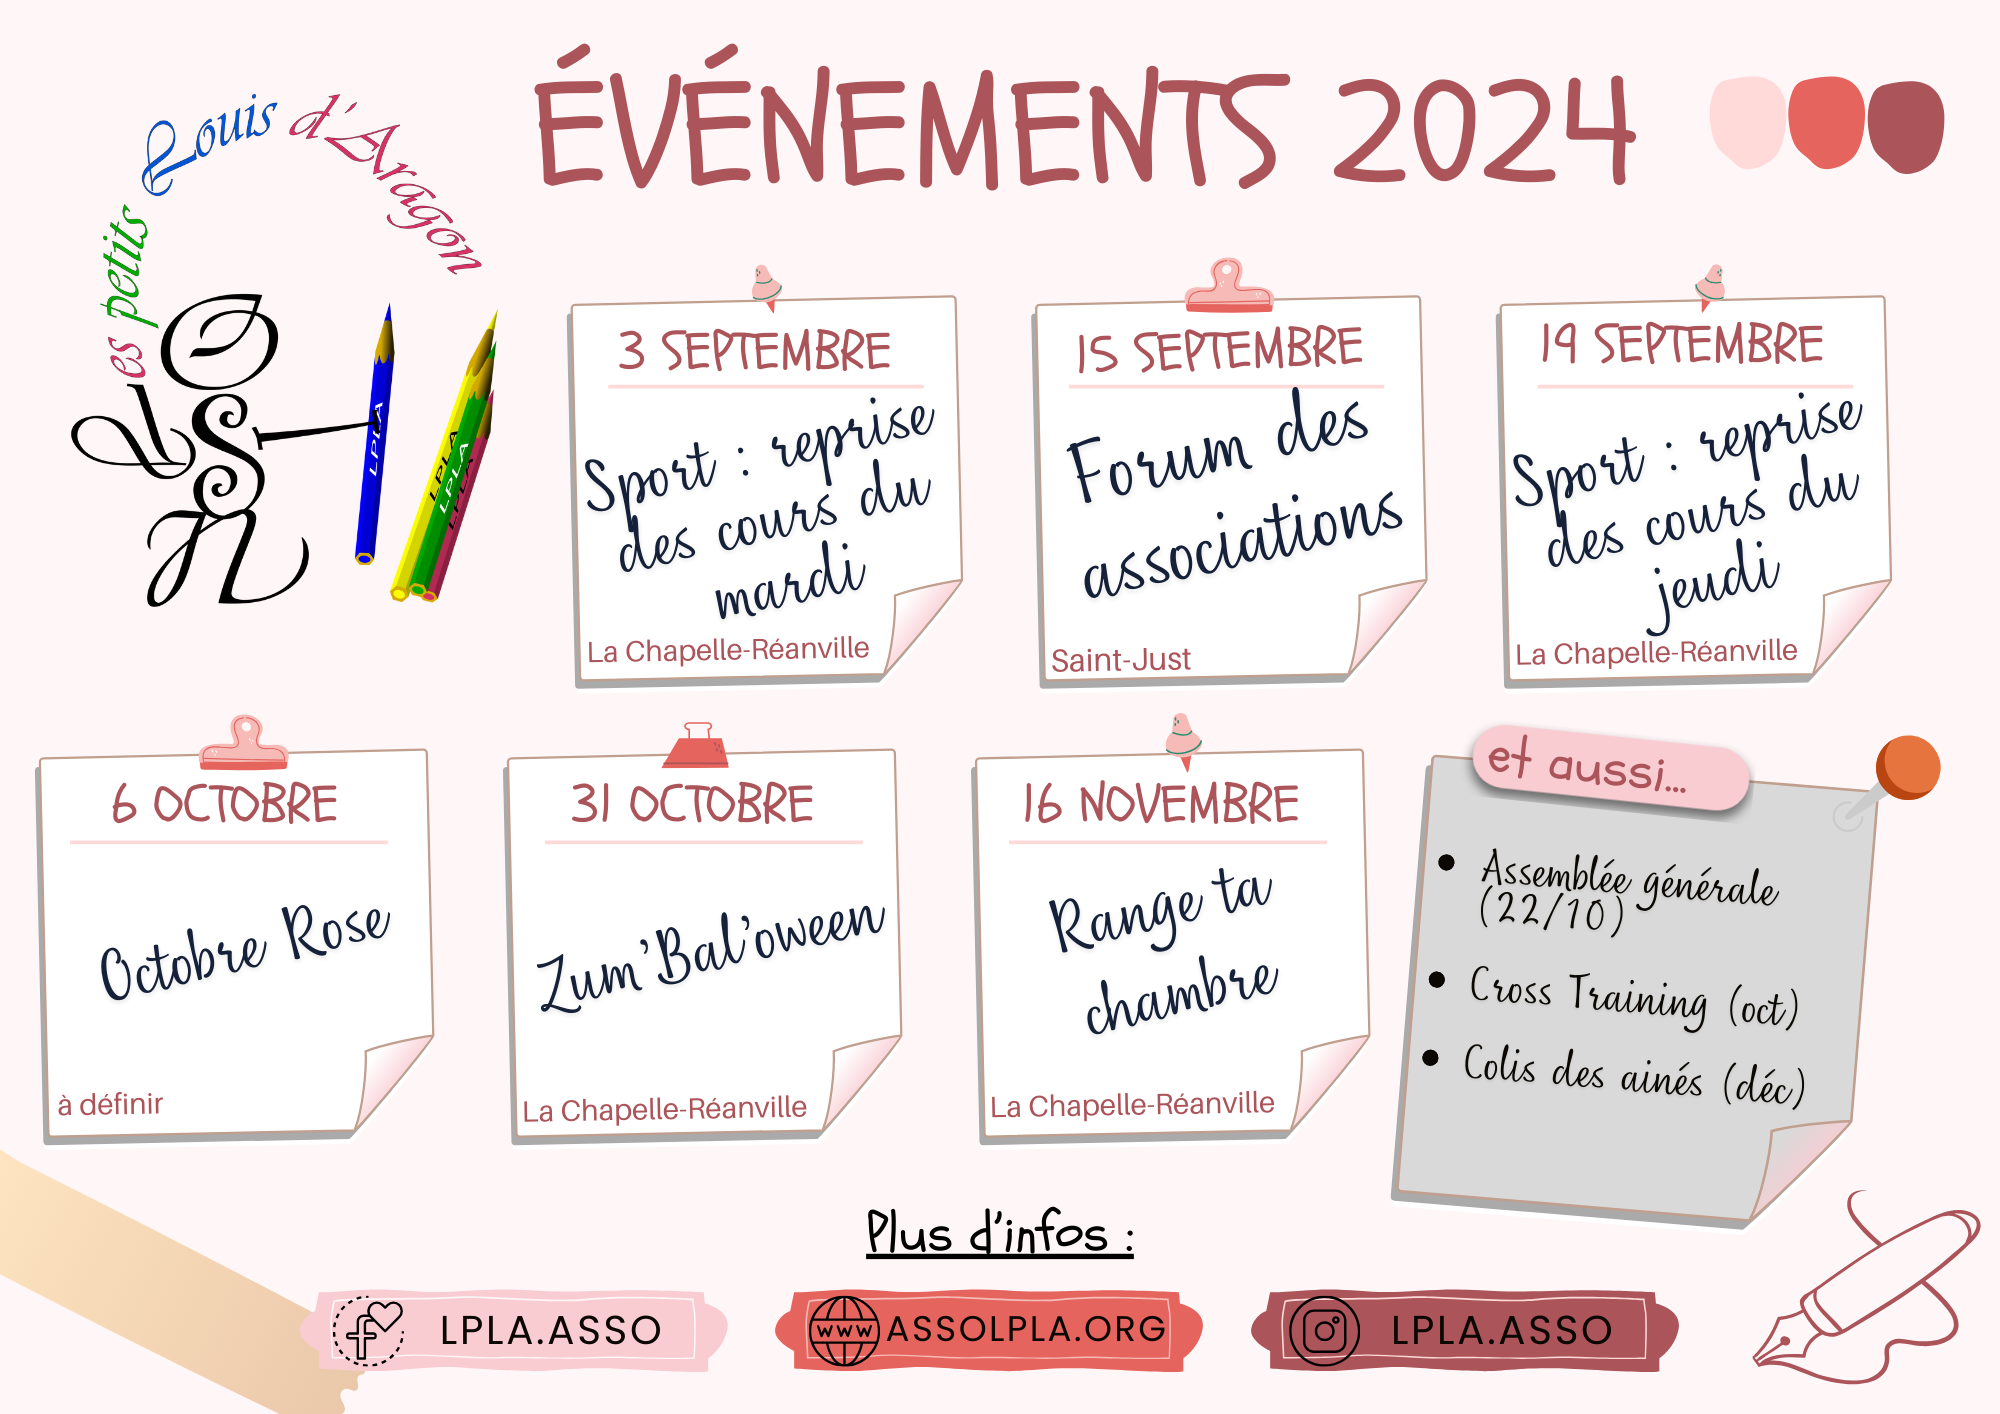 Les petits Louis d'Aragon
ASSO
LPLA
LPLA
LPLA
LPLA
ÉVÉNEMENTS 2024
3 SEPTEMBRE
Sport : reprise
des cours du
mardi
La Chapelle-Réanville
15 SEPTEMBRE
Forum des
associations
Saint-Just
19 SEPTEMBRE
Sport : reprise
des cours du
jeudi
La Chapelle-Réanville
6 OCTOBRE
Octobre Rose
à définir
31 OCTOBRE
Zum'Bal'oween
La Chapelle-Réanville
16 NOVEMBRE
Range ta
chambre
La Chapelle-Réanville
et aussi...
Assemblée générale
(22/10)
Cross Training (oct)
Colis des ainés (déc)
Plus d'infos :
LPLA.ASSO
www ASSOLPLA.ORG
LPLA.ASSO